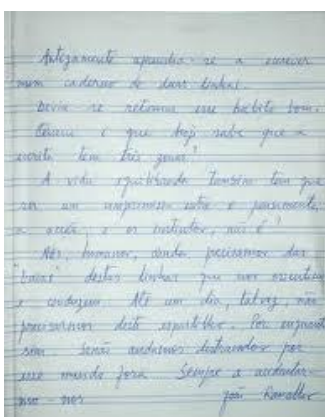 Antigamente aprendia-se a escrever
num caderno de duas linhas.
Devia-se retomar esse hábito bom.
Quem é que hoje sabe que a
escrita tem três zonas?
A vida equilibrada também tem que
ser um compromisso entre o pensamento,
a acção, e os instintos, não é?
Nós, humanos, ainda precisamos das
"baias" destas linhas que nos orientam
e conduzem. Até um dia, talvez, não
precisarmos deste espartilho. Por enquanto
sim, senão andamos destravados por
esse mundo fora. Sempre a acidentar-
mo-nos
João Ramalho